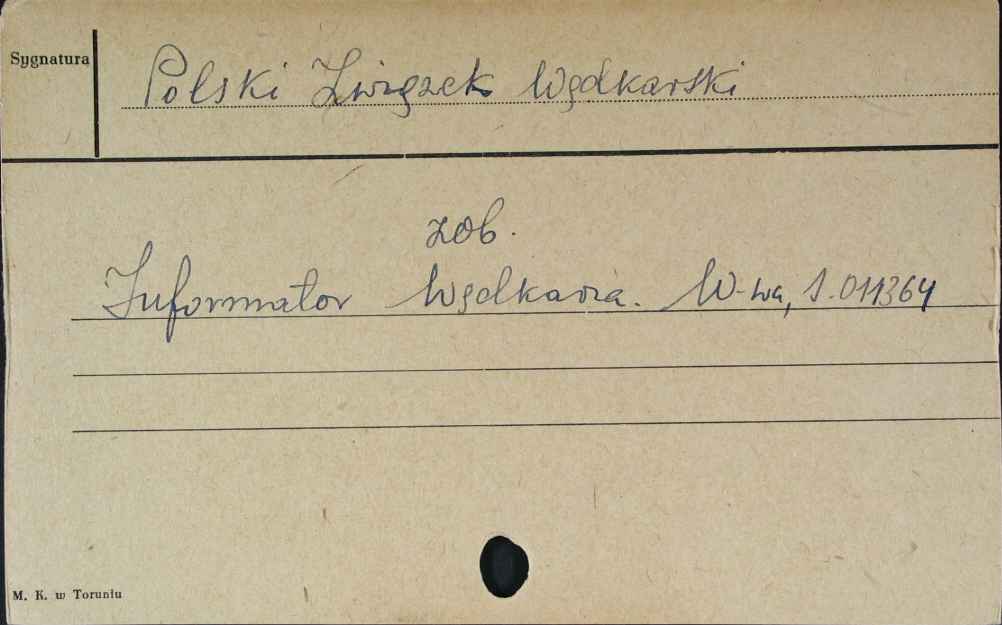 Sygnatura
Polski Związek Wędkarski
zob.
Informator Wędkarza. W-wa, S. 011364
M. K. w Toruniu